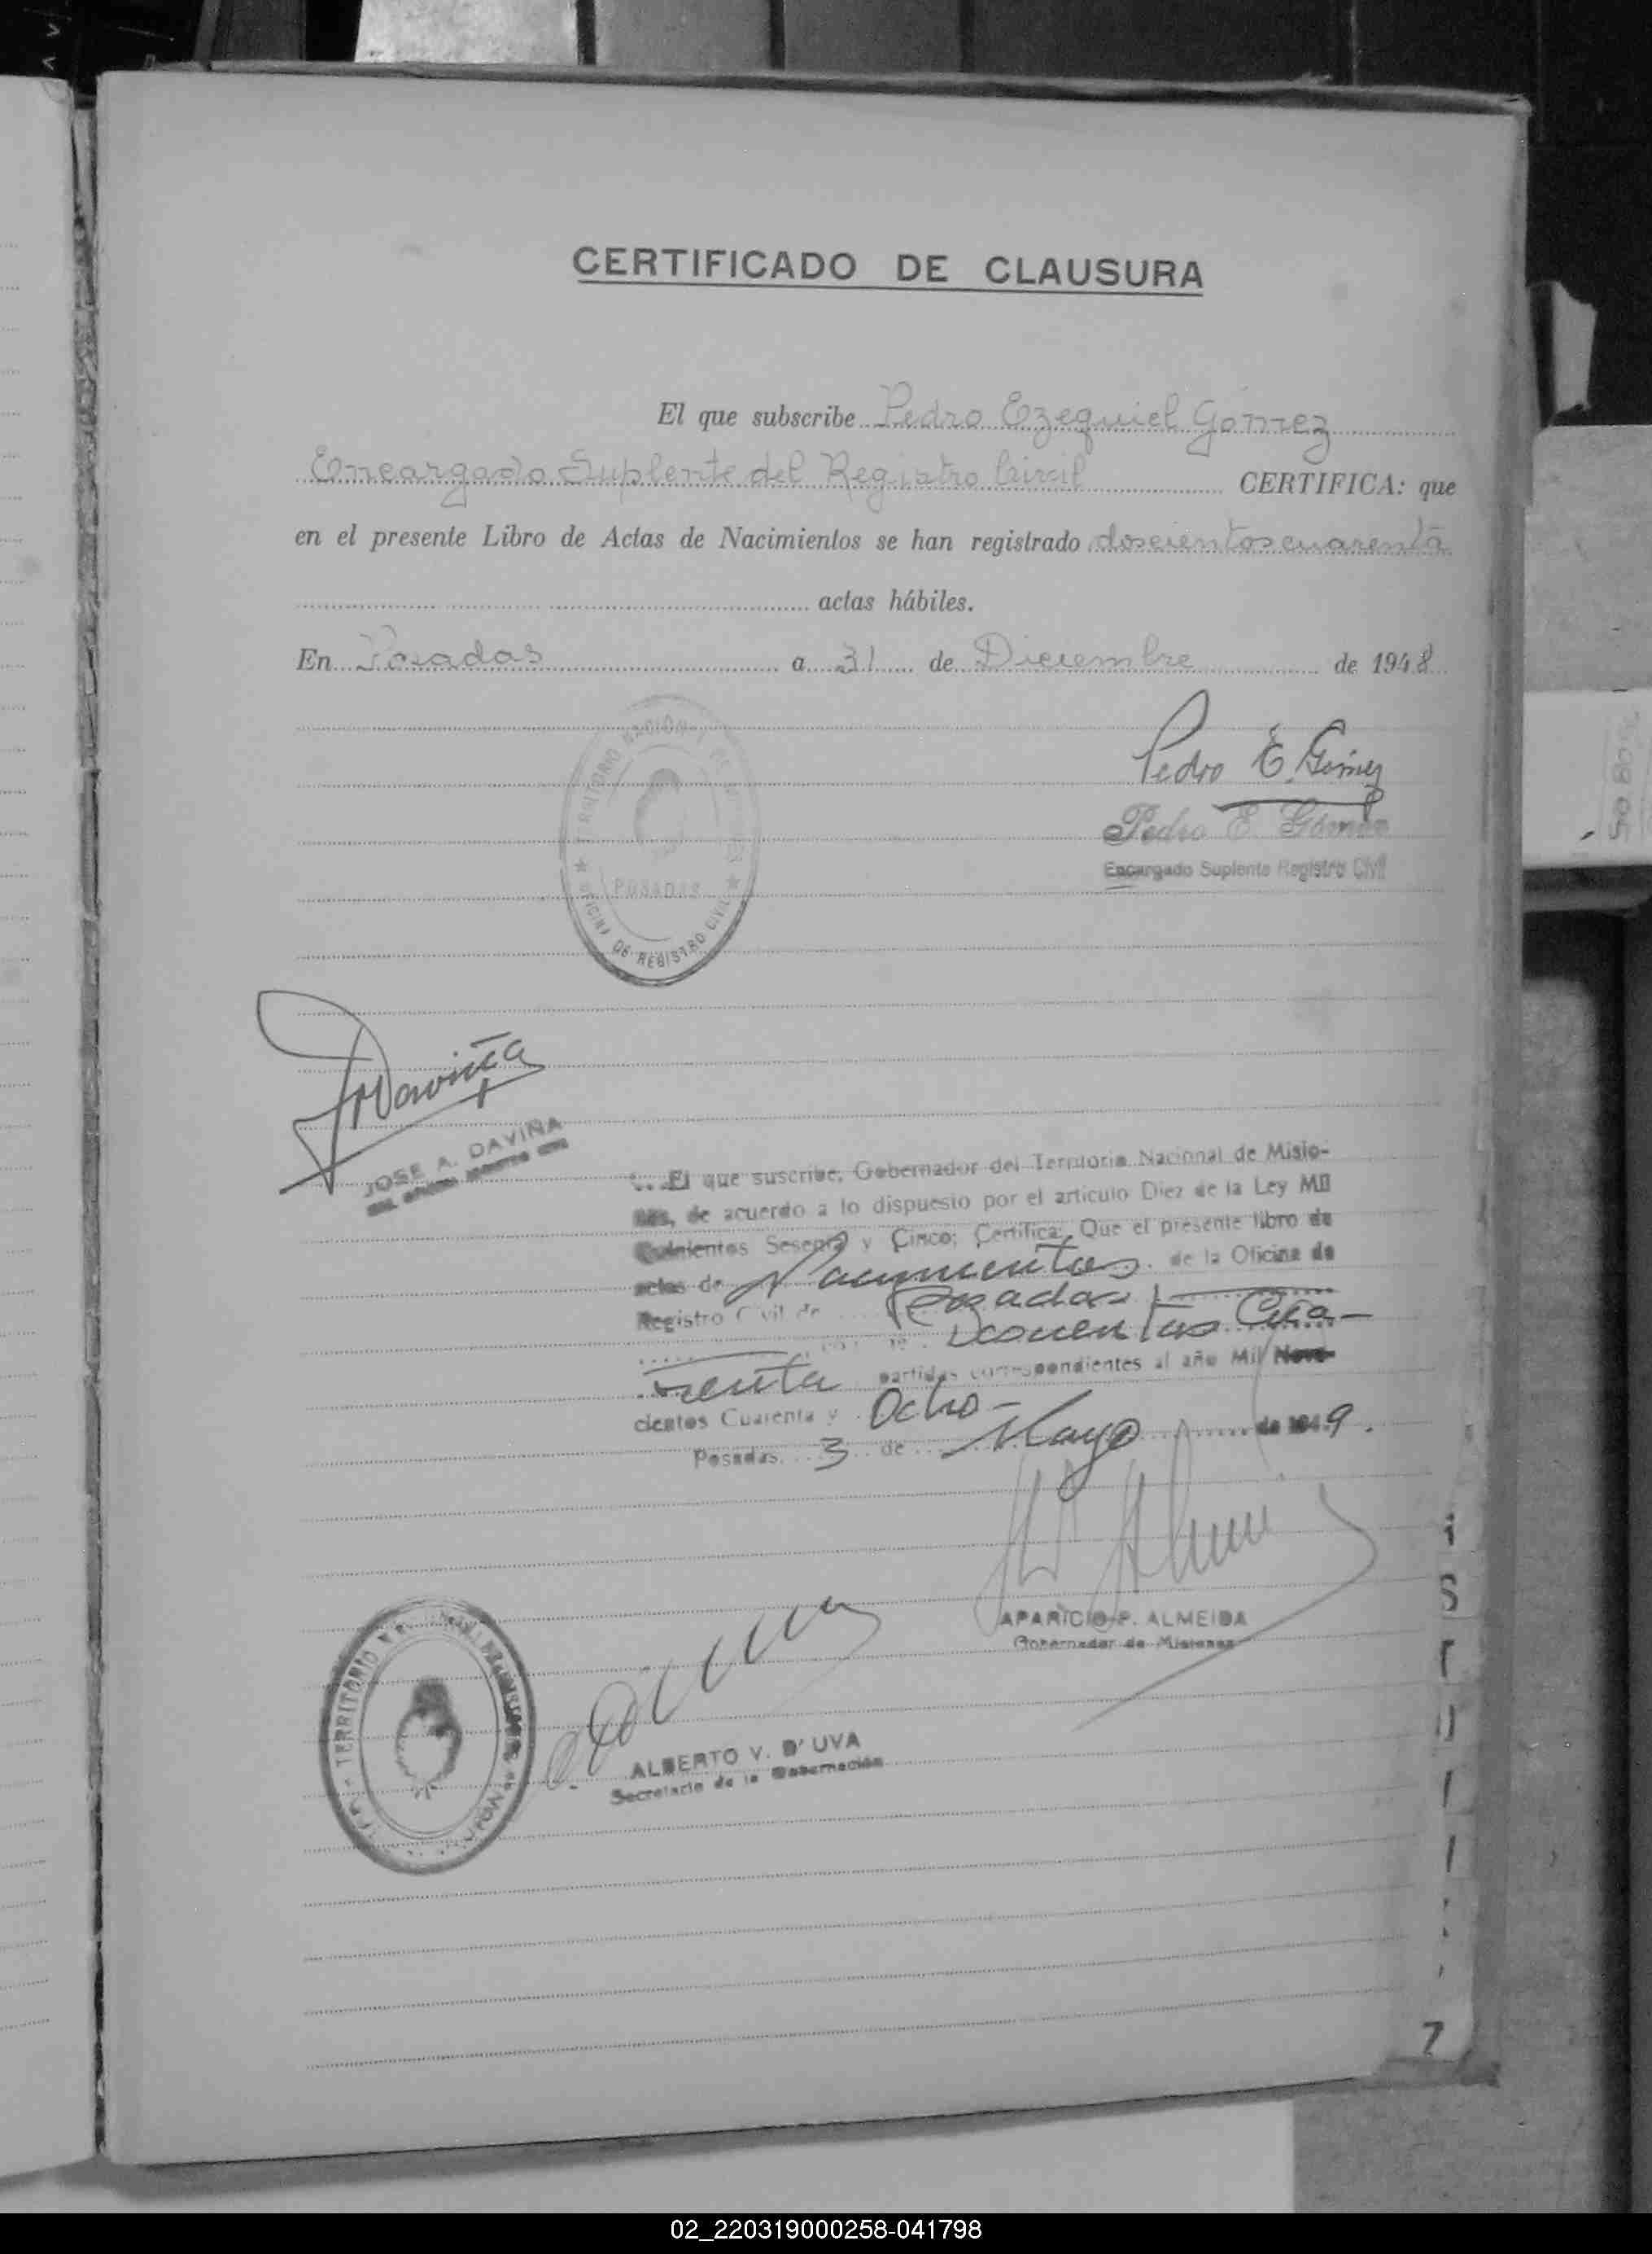 CERTIFICADO DE CLAUSURA
El que subscribe Pedro Ezequiel Gómez
Encargado Suplente del Registro Civil CERTIFICA: que
en el presente Libro de Actas de Nacimientos se han registrado doscientos cuarenta
actas hábiles.
En Posadas a 31 de Diciembre de 1948
Pedro E. Gómez
Pedro E. Gómez
Encargado Suplente Registro Civil
TERRITORIO NACIONAL DE
POSADAS
OFICINA DE REGISTRO CIVIL
JOSE A. DAVIÑA
El que suscribe, Gobernador del Territorio Nacional de Misio-
nes, de acuerdo a lo dispuesto por el artículo Diez de la Ley Mil
Quinientos Sesenta y Cinco; Certifica: Que el presente libro de
actas de Nacimientos de la Oficina de
Registro Civil de Posadas
Doscientos Cua-
renta partidas correspondientes al año Mil Nove-
cientos Cuarenta y Ocho
Posadas 3 de Mayo de 1949.
APARICIO P. ALMEIDA
Gobernador de Misiones
TERRITORIO
ALBERTO V. D'UVA
Secretario de la Gobernación
Z
02_220319000258-041798